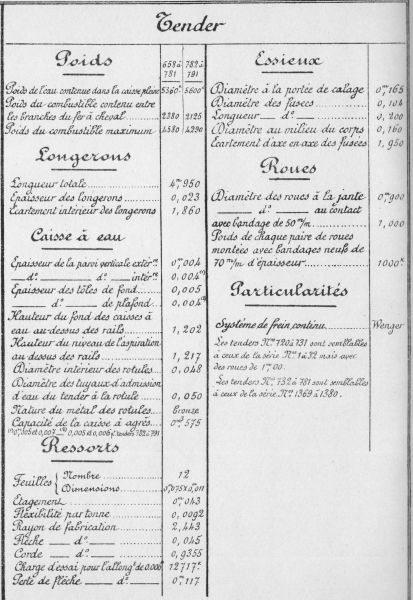 Tender
Poids
658 à 781
782 à 791
Poids de l'eau contenue dans la caisse pleine 5360k 5600k
Poids du combustible contenu entre
les branches du fer à cheval 2380 2125
Poids du combustible maximum 4580 4290
Longerons
Longueur totale 4m950
Epaisseur des longerons 0,023
Ecartement intérieur des longerons 1,860
Caisse à eau
Epaisseur de la paroi verticale extérre 0m004
— do — do — intérre 0,004(1)
Epaisseur des tôles de fond 0,005
— do — de plafond 0,004
Hauteur du fond des caisses à
eau au-dessus des rails 1,202
Hauteur du niveau de l'aspiration
au dessus des rails 1,217
Diamètre intérieur des rotules 0,048
Diamètre des tuyaux d'admission
d'eau du tender à la rotule 0,050
Nature du métal des rotules bronze
Capacité de la caisse à agrès 0m3575
Ressorts
Feuilles { Nombre 12
Dimensions 0m075x0m011
Etagement 0m043
Fléxibilité par tonne 0,0092
Rayon de fabrication 2,443
Flèche — do — 0,045
Corde — do — 0,9355
Charge d'essai pour l'allongt de 0.006 12717k
Perte de flèche — do — 0m117
Essieux
Diamètre à la portée de calage 0m165
Diamètre des fusées 0,104
Longueur — do — 0,200
Diamètre au milieu du corps 0,160
Ecartement d'axe en axe des fusées 1,950
Roues
Diamètre des roues à la jante 0m900
— do — au contact
avec bandage de 50m/m 1,000
Poids de chaque paire de roues
montées avec bandages neufs de
70m/m d'épaisseur 1000k
Particularités
Système de frein continu Wenger
Les tenders Nos 720 à 731 sont semblables
à ceux de la série Nos 1 à 32 mais avec
des roues de 1m00.
Les tenders Nos 732 à 781 sont semblables
à ceux de la série Nos 1369 à 1380.